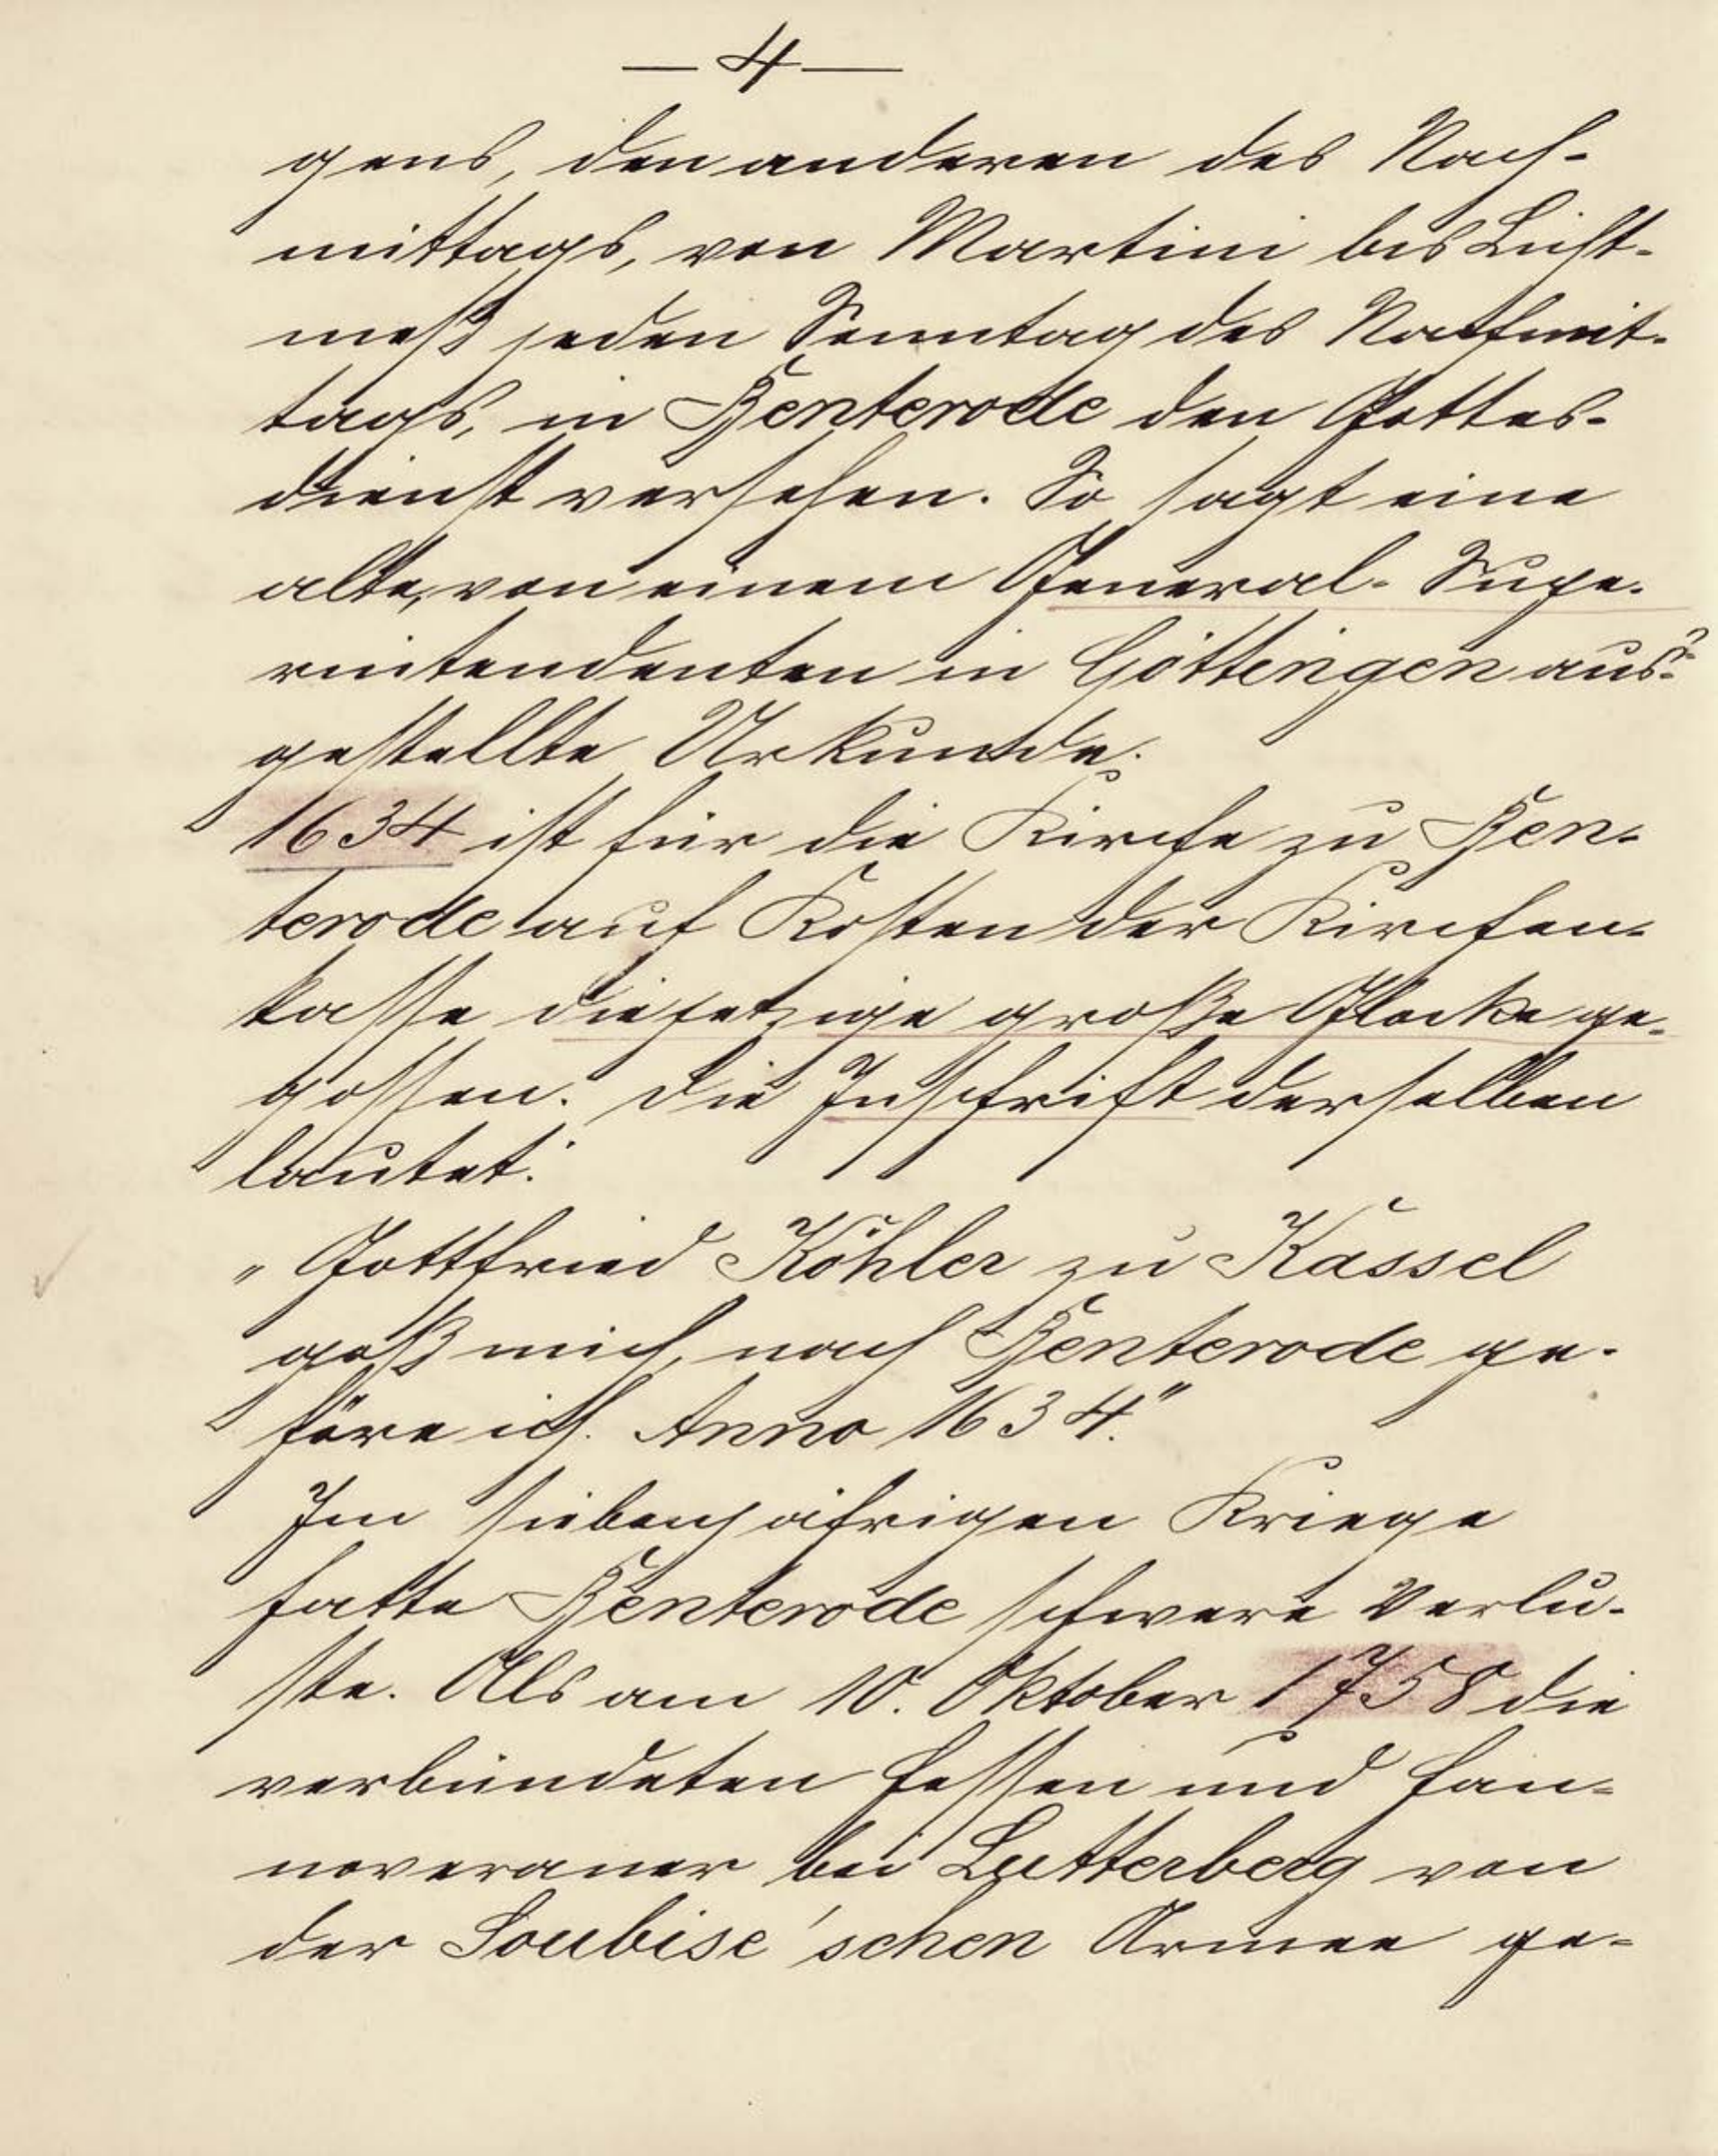 — 4 —
gens, den anderen des Nach-
mittags, von Martini bis Licht-
meß jeden Sonntag des Nachmit-
tags, in Benterode den Gottes-
dienst versehen. So sagt eine
alte, von einem General-Supe-
rintendenten in Göttingen aus-?
gestellte Urkunde.
1634 ist für die Kirche zu Ben-
terode auf Kosten der Kirchen-
kasse die jetzige große Glocke ge-
gossen. Die Inschrift derselben
lautet:
„Gottfried Köhler zu Kassel
goß mich, nach Benterode ge-
höre ich. Anno 1634."
Im siebenjährigen Kriege
hatte Benterode schwere Verlu-
ste. Als am 10. Oktober 1758 die
verbündeten Hessen und Han-
noveraner bei Lutterberg von
der Soubise'schen Armee ge-